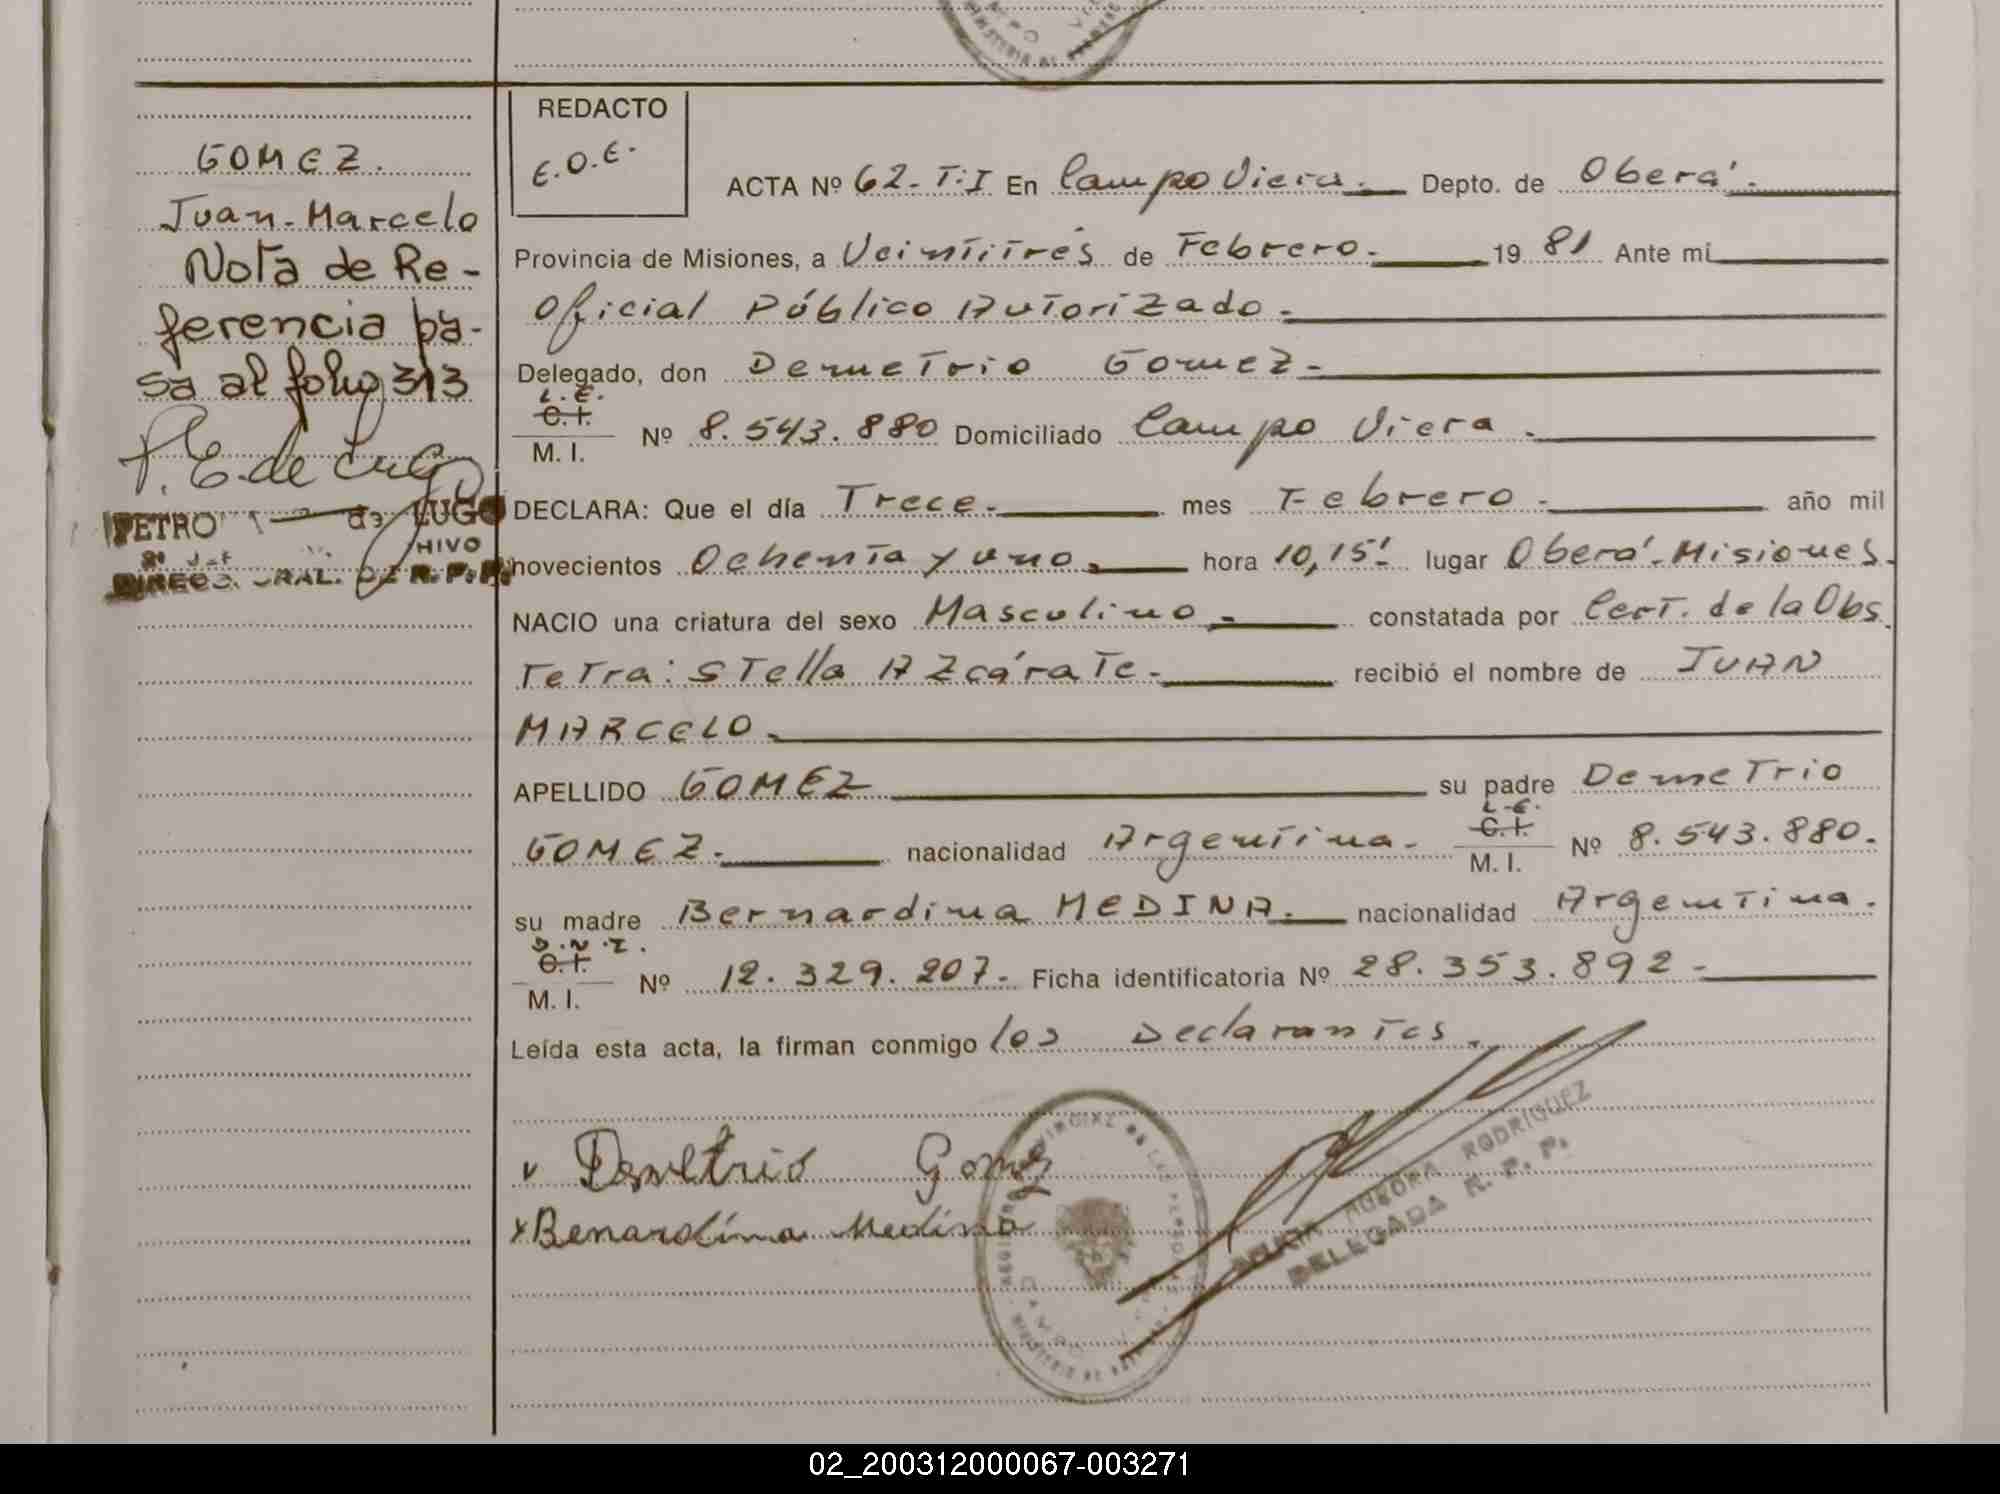 GOMEZ.
Juan-Marcelo
Nota de Re-
ferencia pa-
sa al folio 313
P. E. de Lugo
PETRO de LUGO
HIVO
DIREC. GRAL. DE R. P. P.
REDACTO
E.O.E.
ACTA Nº 62-T:I En Campo Viera.- Depto. de Oberá.-
Provincia de Misiones, a Veintitrés de Febrero.- 19 81 Ante mí
Oficial Público Autorizado.-
Delegado, don Demetrio Gomez.-
L.E.
C.I.
M. I. Nº 8.543.880 Domiciliado Campo Viera.-
DECLARA: Que el día Trece.- mes Febrero.- año mil
novecientos Ochenta y uno.- hora 10,15! lugar Oberá-Misiones.
NACIO una criatura del sexo Masculino.- constatada por Cert. de la Obs.
Tetra: Stella Azcárate.- recibió el nombre de JUAN
MARCELO.-
APELLIDO GOMEZ su padre Demetrio
GOMEZ.- nacionalidad Argentina.-
L.E.
C.I.
M. I. Nº 8.543.880.
su madre Bernardina MEDINA.- nacionalidad Argentina.
D.N.I.
C.I.
M. I. Nº 12.329.207.- Ficha identificatoria Nº 28.353.892.-
Leída esta acta, la firman conmigo los Declarantes.
Demetrio Gomez
x Benardina Medina
AURORA RODRIGUEZ
DELEGADA R. P. P.
02_200312000067-003271